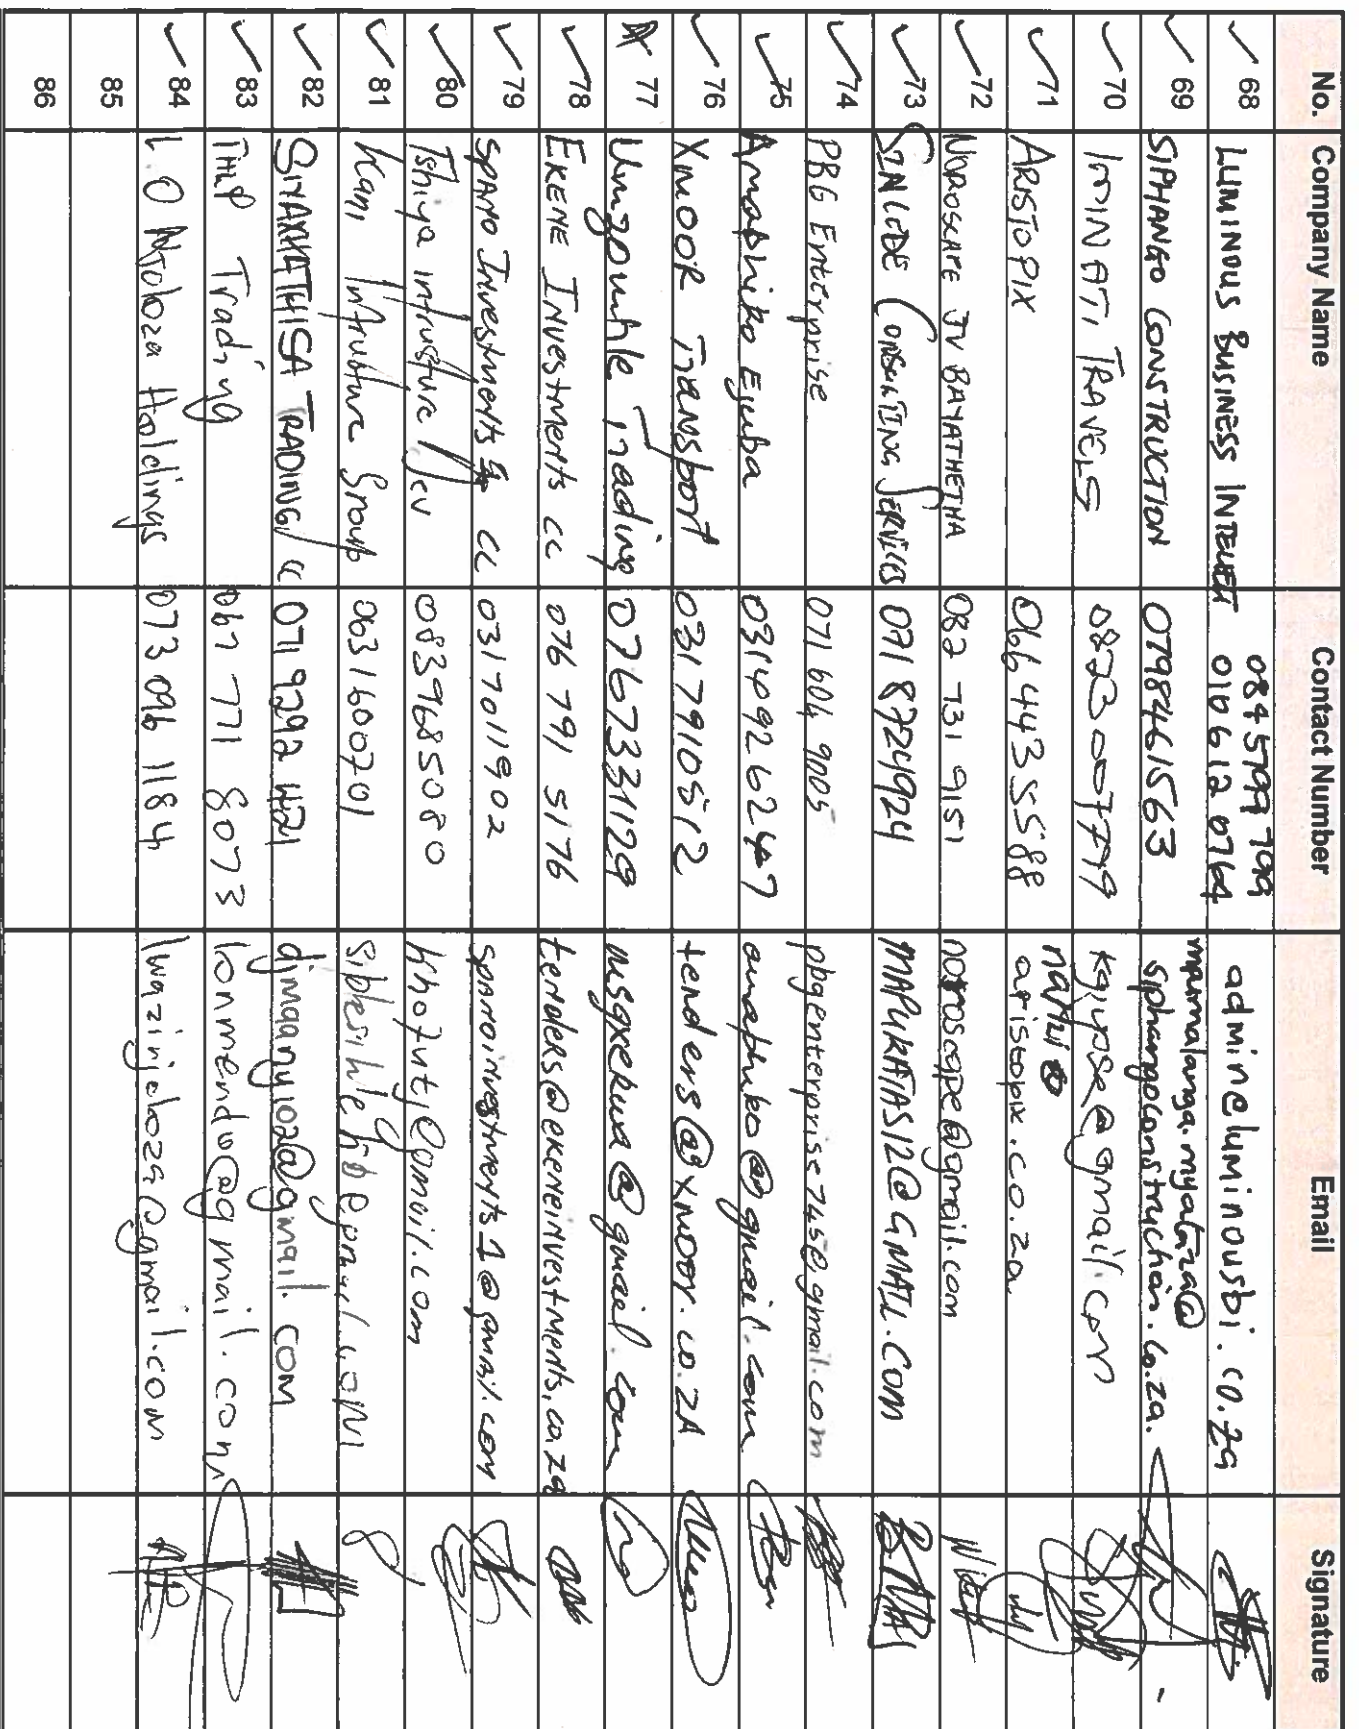 No. Company Name Contact Number Email Signature
084 5799 799
68 LUMINOUS BUSINESS INTELLER 010 612 0764 admin@luminousbi.co.za
69 SIPHANGO CONSTRUCTION 0798461563
siphangoconstruction.co.za.
70 IMINATI TRAVELS kgipse@gmail.com
71 ARISTOPIX 0664435588
aristopix.co.za
72 NOROSCAPE JV BAYATHETHA 082 731 9151 noroscape@gmail.com
73 SINCEDE CONSULTING SERVICES 071 8724924 MAPUKATAS12@GMAIL.COM
74 PBG Enterprise 071 604 9005 pbgenterprise745@gmail.com
75 Amaphiko Ejuba amaphiko@gmail.com
76 Xmoor Transport 0317910512 tenders@xmoor.co.za
77 Umzomuhle Trading 0767331129 msgxekwa@gmail.com
78 EKENE INVESTMENTS cc 076 791 5176 tenders@ekeneinvestments.co.za
79 SPANO Investments cc 0317011902 spanoinvestments1@gmail.com
80 Tshiya 0839685080 khozntj@gmail.com
81 Kani Group 0631600701
82 SIYAKHATHISA TRADING cc 071 9292 421 djmqanyi02@gmail.com
83 TMP Trading 067 771 8073 lonmendo@gmail.com
84 L.O Njoloza Holdings 073 096 1184 lwazinjoloza@gmail.com
85
86